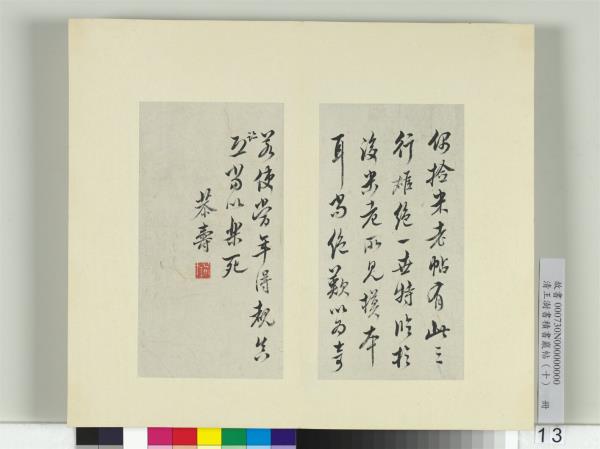 偶拾米老帖有此三
行雄絕一世特臨於
後米老所見摸本
耳當絕歎以為奇
若使當年得覩真
當以樂死
恭壽
故書000730N000000000
清王澍書積書巖帖(十) 冊
13